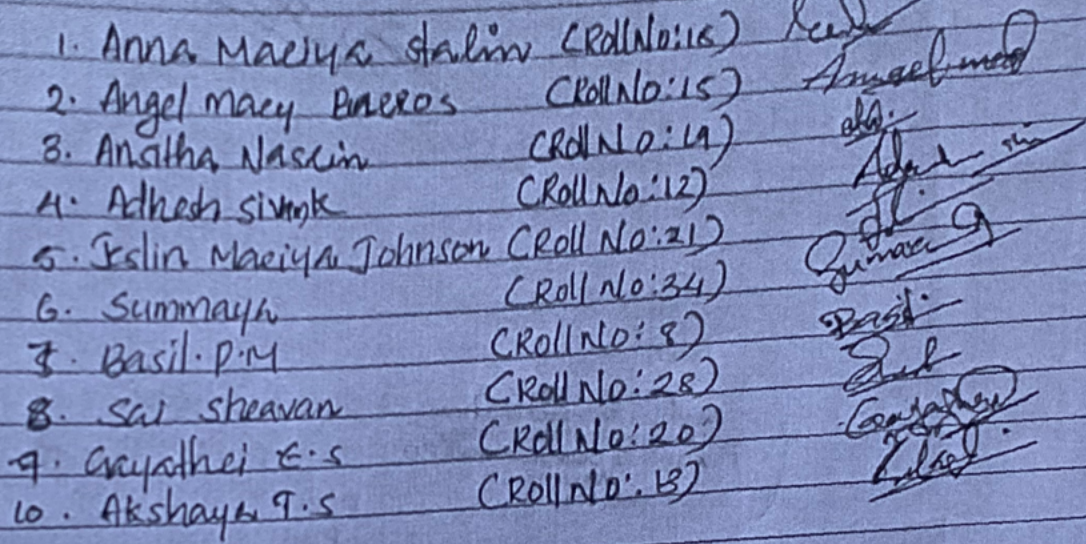 1. Anna Mariya Stalin (Roll No:16)
2. Angel mary Bneros (Roll No:15) Angel mary
3. Ansitha Nasrin (Roll No:19)
4. Adhesh sivmk (Roll No:12)
5. Islin Mariya Johnson (Roll No:21)
6. Summayh (Roll No:34)
7. Basil. P.M (Roll No:8) Basil
8. Sai shravan (Roll No:28)
9. Gayathri E.S (Roll No:20) Gayathri
10. Akshaya T.S (Roll No:13)